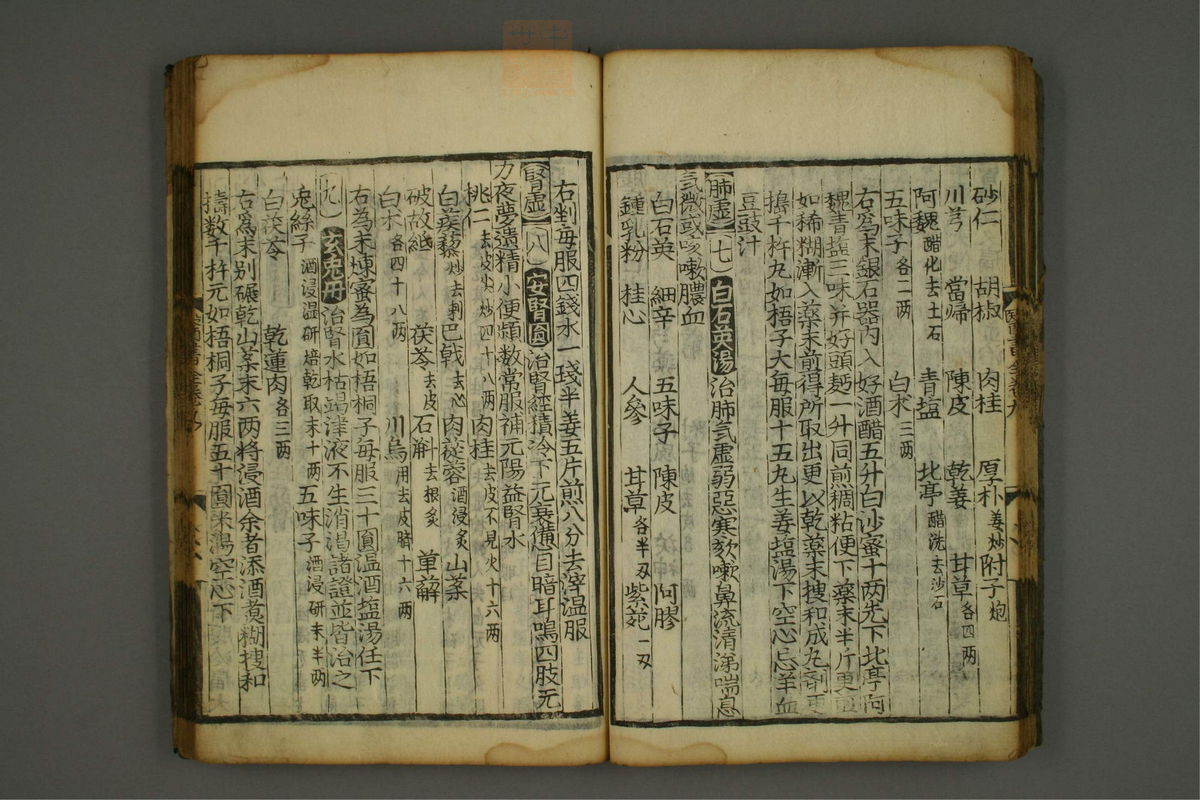 砂仁 胡椒 肉桂 厚朴姜炒 附子炮
川芎 當歸 陳皮 乾姜 甘草各四两
阿魏醋化去土石 青塩 北亭醋洗去沙石
五味子各二两 白术三两
右爲末銀石器內入好酒醋五升白沙蜜十两先下北亭阿
魏青塩三味并好頭麪一升同煎稠粘便下藥末半斤更煎
如稀糊漸入藥末前得所取出更以乾藥末搜和成丸劑更
搗千杵丸如梧子大毎服十五丸生姜塩湯下空心忌羊血
豆豉汁
肺虛 七 白石英湯 治肺気虛弱惡寒欬嗽鼻流清涕喘息
気微或咳嗽膿血
白石英 細辛 五味子 陳皮 阿膠
鍾乳粉 桂心 人參 甘草各半刄 紫菀一刄
右剉毎服四錢水一琖半姜五片煎八分去滓温服
腎虛 八 安腎圓 治腎經積冷下元衰憊目暗耳鳴四肢无
力夜夢遺精小便頻数常服補元陽益腎水
桃仁去皮尖炒四十八两 肉桂去皮不見火十六两
白蒺藜炒去刺 巴戟去心 肉蓯蓉酒浸炙 山藥
破故紙 茯苓去皮 石斛去根炙 萆薢
白朮各四十八两 川烏用去皮臍十六两
右為末煉蜜為圓如梧桐子毎服三十圓温酒塩湯任下
九 玄兎丹 治腎水枯竭津液不生消渴諸證並皆治之
兎絲子酒浸温研焙乾取末十两 五味子酒浸研末半两
白茯苓 乾蓮肉各三两
右爲末别碾乾山藥末六两将浸酒余者添酒煑糊搜和
擣数千杵元如梧桐子毎服五十圓米湯空心下